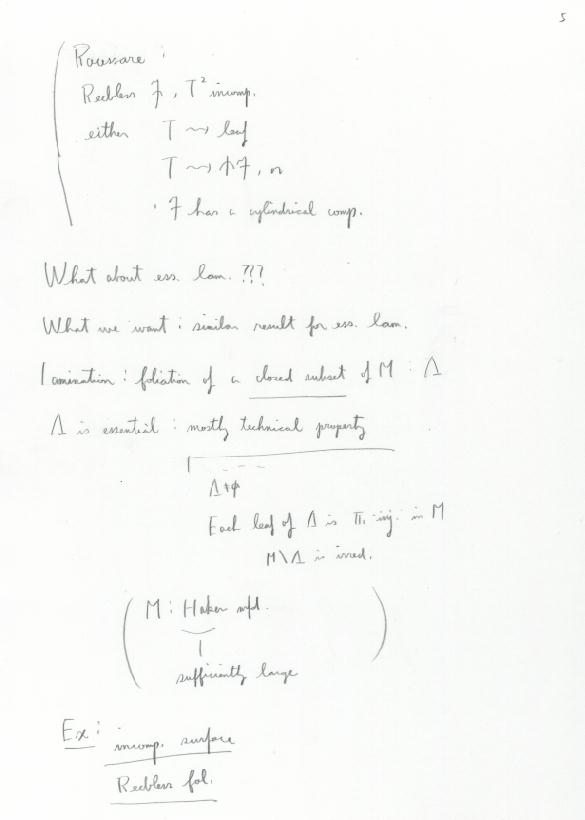 5
Roussare :
Reebless F, T² incomp.
either T ⇝ leaf
T ⇝ ⋔ F, or
· F has a cylindrical comp.
What about ess. lam. ???
What we want : similar result for ess. lam.
Lamination : foliation of a closed subset of M : Λ
Λ is essential : mostly technical property
Λ ≠ φ
Each leaf of Λ is π₁ inj. in M
M \ Λ is irred.
( M : Haken mfd. )
sufficiently large
Ex :
incomp. surface
Reebless fol.